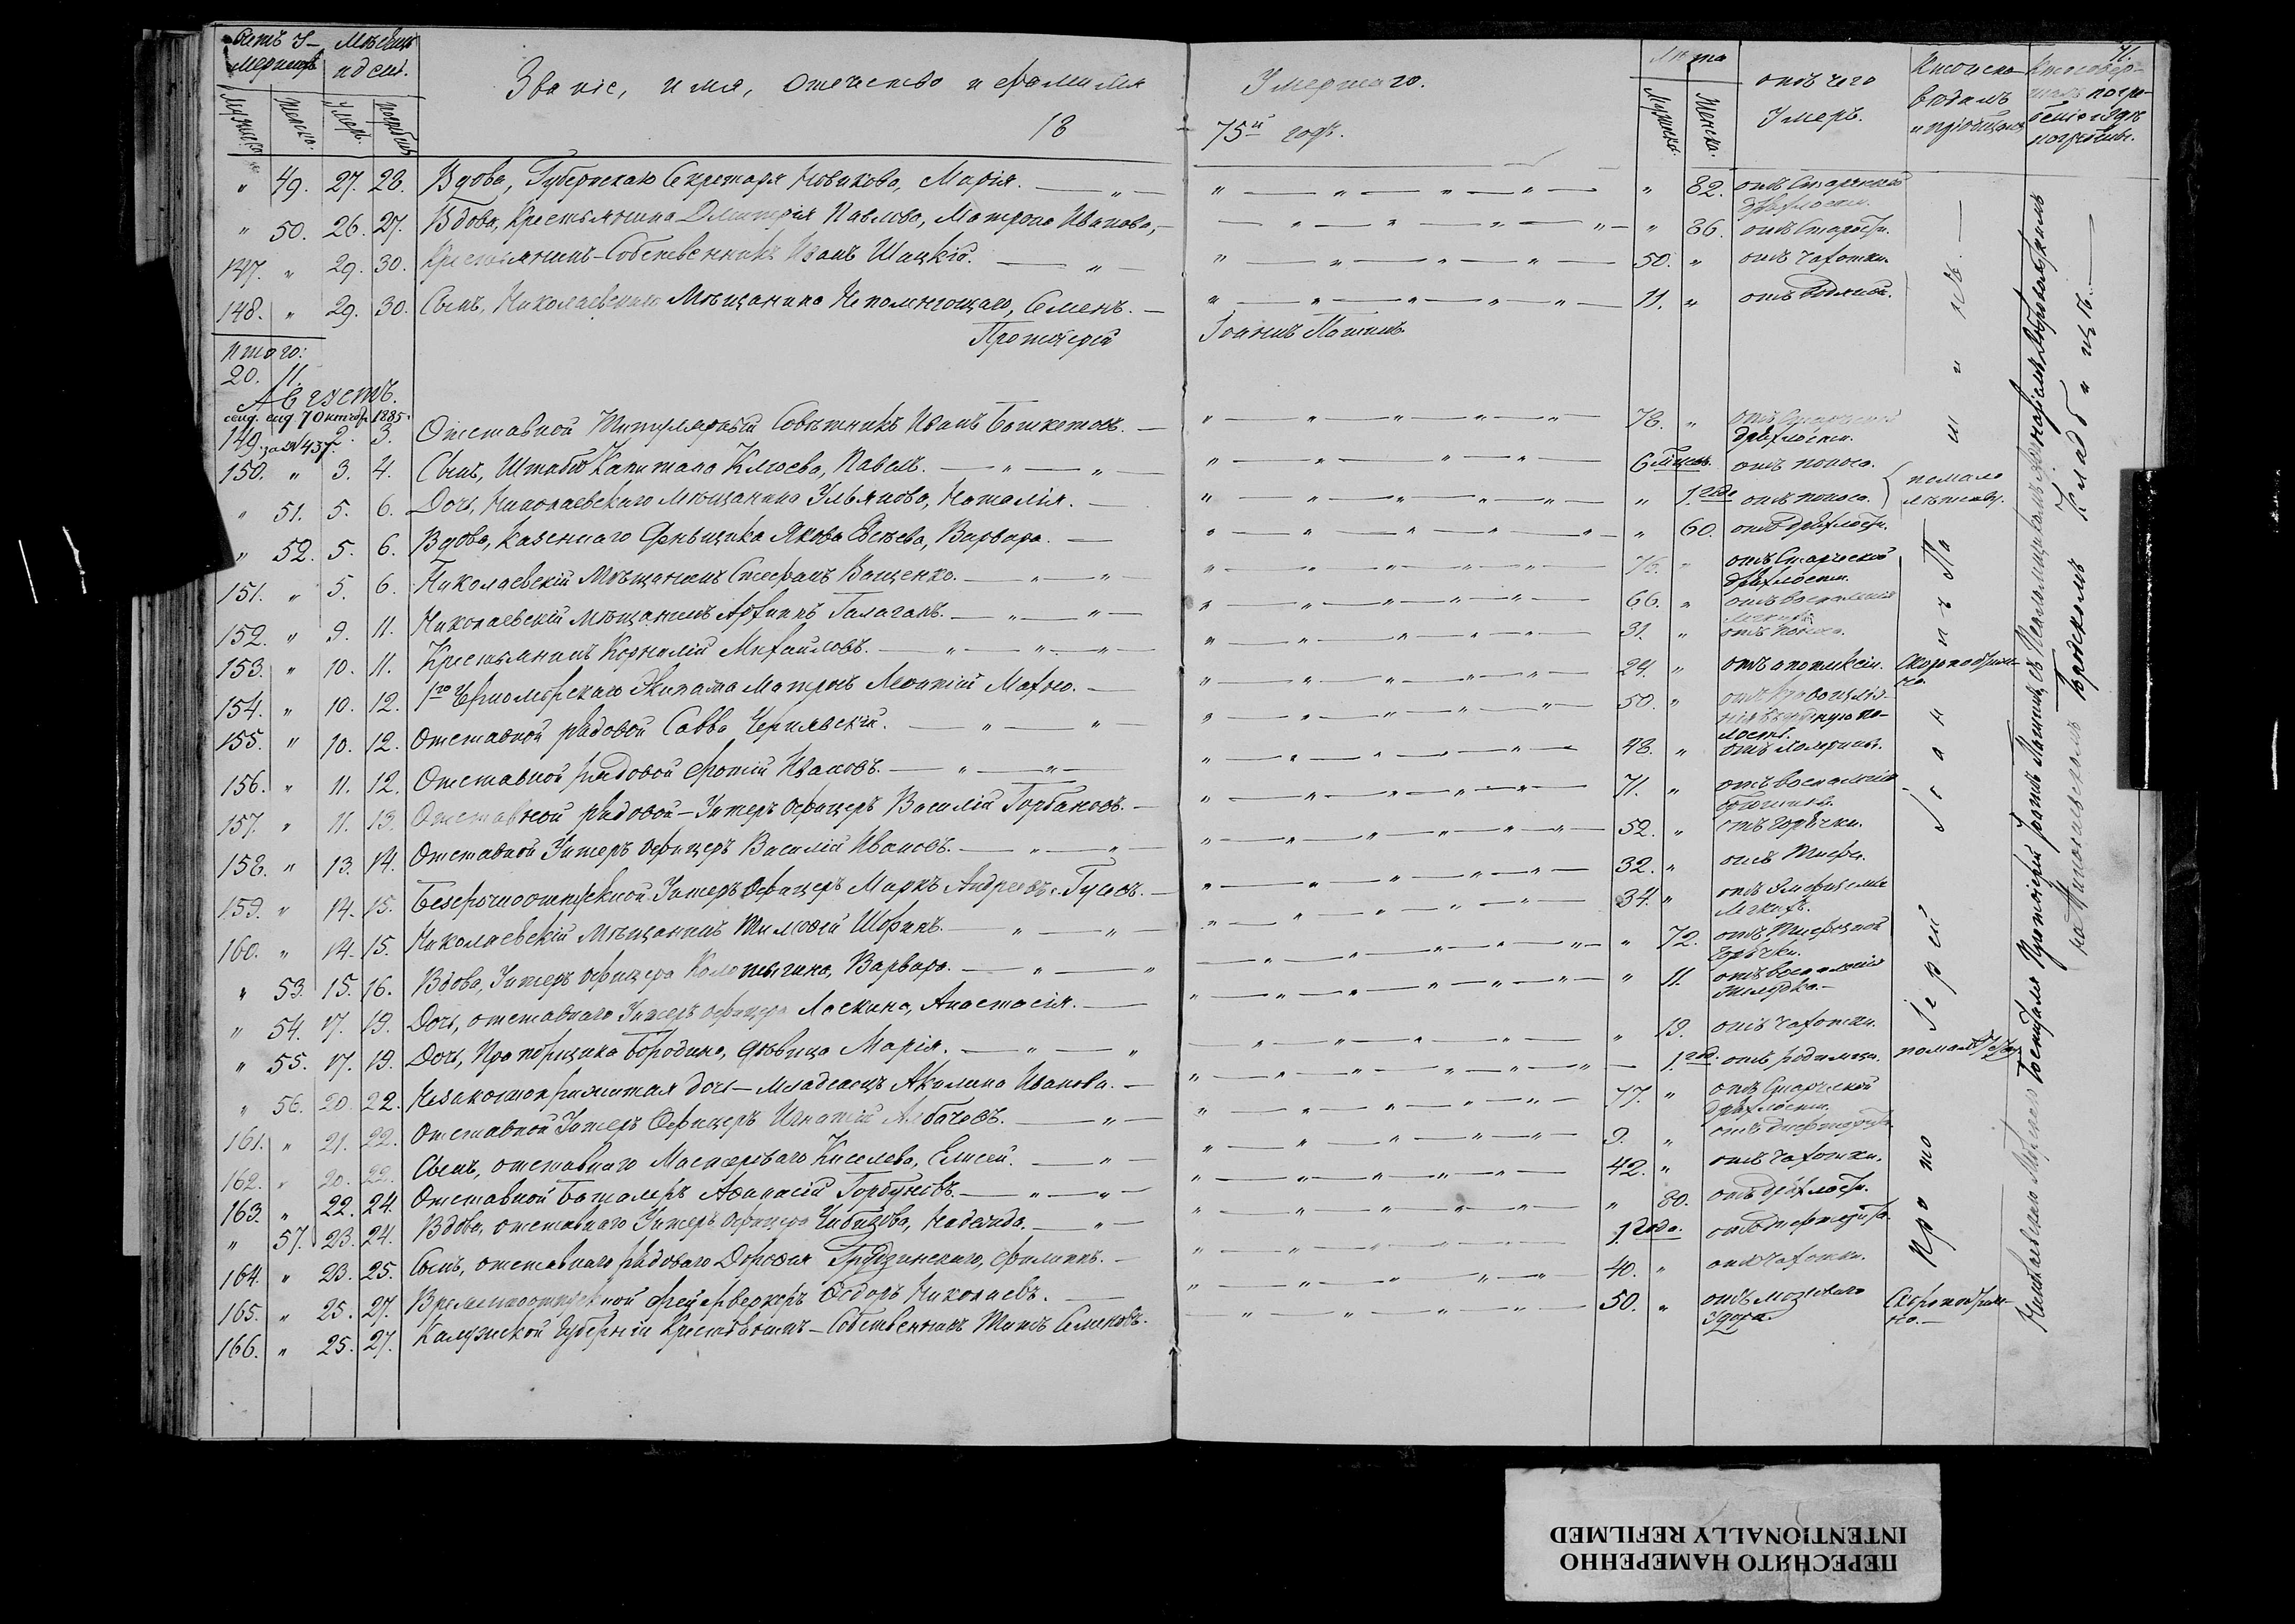 Счетъ У- Мѣсяцъ
мершихъ и день.
Звание, имя, отчество и фамилія Умершаго.
Лѣта
отъ чего Умеръ.
Кто исповѣдалъ и пріобщалъ
Кто совершалъ погребеніе и гдѣ погребены.
71.
Мужеска. Женска. Умеръ. погребенъ.
18 75й годъ.
Мужеска. Женска.
" 49. 27. 28. Вдова, Губернскаго Секретаря Новикова, Марія. " 82. отъ Старческой дряхлости.
" 50. 26. 27. Вдова, Крестьянина Димитрія Павлова, Матрона Иванова, " 86. отъ Старости.
147. " 29. 30. Крестьянинъ-Собственникъ Иванъ Шацкій. 50. " отъ чахотки.
148. " 29. 30. Сынъ, Николаевскаго Мѣщанина Непомнющаго, Семенъ. 11. " отъ водяной.
Протоіерей Іоаннъ Пашинъ
Итого:
20. 11.
Августъ.
7 Октябр 1885.
за № 437.
149. 2. 3. Отставной Титулярный Совѣтникъ Иванъ Башкетовъ. 78. " отъ Старческой дряхлости.
150. " 3. 4. Сынъ, Штабсъ Капитана Клюева, Павелъ. 6 мѣсяц. отъ поноса.
" 51. 5. 6. Дочь, Николаевскаго Мѣщанина Ульянова, Наталія. " 1. года отъ поноса.
по мало лѣтству.
" 52. 5. 6. Вдова, Казеннаго Деньщика Якова Евсѣева, Варвара. " 60. отъ дряхлости.
151. " 5. 6. Николаевскій Мѣщанинъ Стефанъ Ващенко. 76. " отъ Старческой дряхлости.
152. " 9. 11. Николаевскій Мѣщанинъ Архипъ Галаганъ. 66. " отъ воспаленія легкихъ.
153. " 10. 11. Крестьянинъ Корнилій Михайловъ. 31. " отъ поноса.
154. " 10. 12. 1го Черноморскаго Экипажа Матросъ Леонтій Махно. 24. " отъ апоплексіи. Скоропостижно.
155. " 10. 12. Отставной рядовой Савва Чернявскій. 50. " отъ полость.
156. " 11. 12. Отставной рядовой Фотій Ивановъ. 48. " отъ холерины.
157. " 11. 13. Отставной рядовой-Унтеръ Офицеръ Василій Горбановъ. 71. " отъ воспаленія брюшины.
158. " 13. 14. Отставной Унтеръ Офицеръ Василій Ивановъ. 52. " отъ горячки.
159. " 14. 15. Безсрочноотпускной Унтеръ Офицеръ Маркъ Андреевъ Гусевъ. 32. " отъ Тифа.
160. " 14. 15. Николаевскій Мѣщанинъ Тимофей Шоринъ. 34. " отъ Эмфиземы Легкихъ.
" 53. 15. 16. Вдова, Унтеръ Офицера Колотыгина, Варвара. " 72. отъ Тифозной горячки.
" 54. 17. 19. Дочь, отставнаго Унтеръ офицера Ласкина, Анастасія. " 11. отъ воспаленія Желудка.
" 55. 17. 19. Дочь, Прапорщика Бородина, дѣвица Марія. " 19. отъ чахотки.
" 56. 20. 22. Незаконнорожитая дочь-младенецъ Акилина Иванова. 1. год. отъ родимца.
161. " 21. 22. Отставной Унтеръ Офицеръ Игнатій Лебачевъ. 77. " отъ Старческой дряхлости.
162. " 20. 22. Сынъ, отставнаго Мастероваго Киселева, Елисей. 9. " отъ дифтерита.
163. " 22. 24. Отставной Баталеръ Афанасій Горбуновъ. 42. " отъ чахотки.
" 57. 23. 24. Вдова, отставнаго Унтеръ Офицера Чибизова, Надежда. " 80. отъ дряхлости.
164. " 23. 25. Сынъ, отставнаго рядоваго Дорофея Грудзинскаго, Филиппъ. 1. года. отъ дифтерита.
165. " 25. 27. Временноотпускной Фейерверкеръ Федоръ Николаевъ. 40. " отъ чахотки.
166. " 25. 27. Калужской Губерніи Крестьянинъ-Собственникъ Титъ Семеновъ. 50. " отъ мозговаго Удара. Скоропостижно.
Протоіерей Іоаннъ Пашинъ.
Николаевскаго Морскаго Госпиталя Протоіерей Іоаннъ Пашинъ съ Псаломщикомъ
на Николаевскомъ Городскомъ Кладбищѣ.
ПЕРЕСНЯТО НАМЕРЕННО
INTENTIONALLY REFILMED